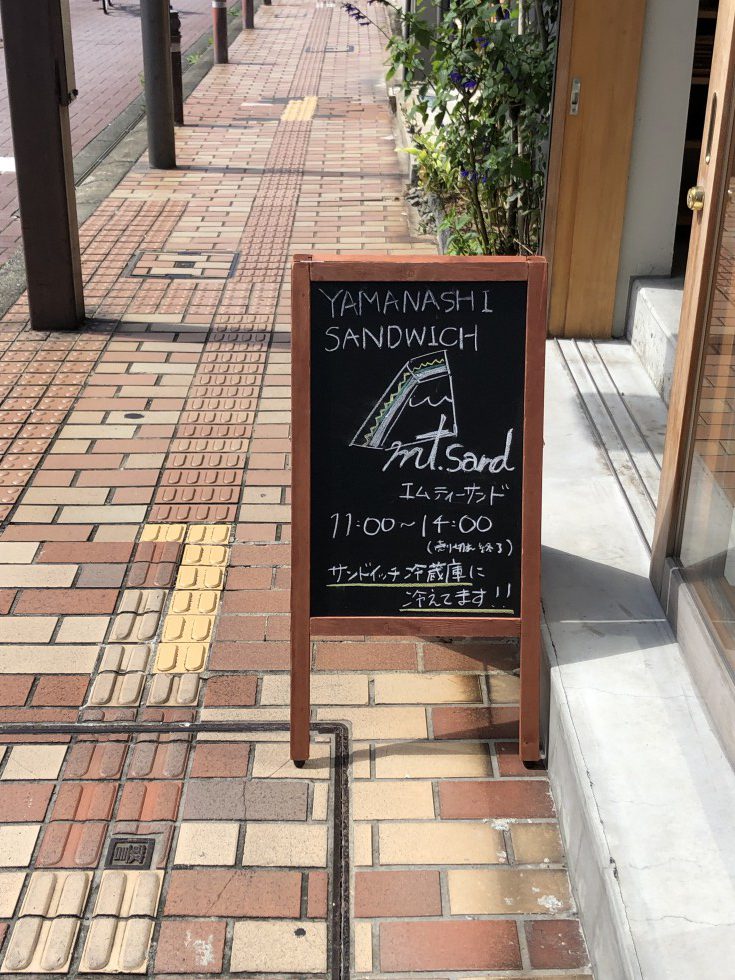 YAMANASHI
SANDWICH
mt.sand
エムティーサンド
11:00～14:00
(売り切れ次第終了)
サンドイッチ冷蔵庫に
冷えてます!!